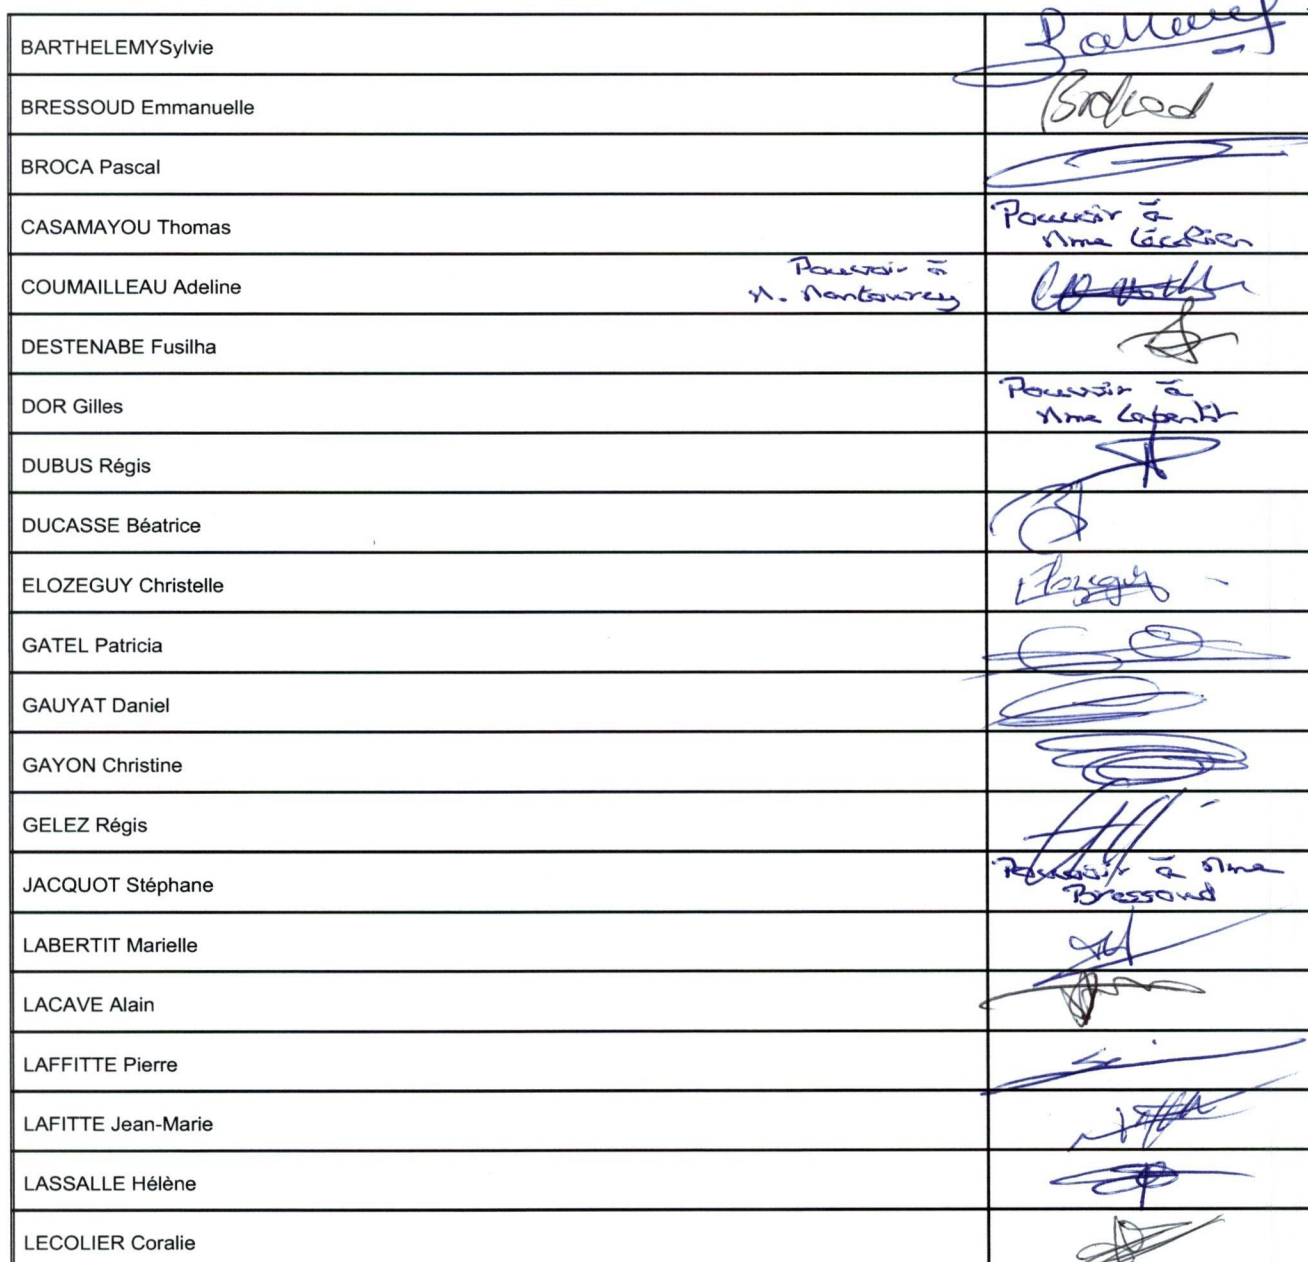 BARTHELEMYSylvie
BRESSOUD Emmanuelle
BROCA Pascal
CASAMAYOU Thomas
Pouvoir à
Mme Lécolier
COUMAILLEAU Adeline
Pouvoir à
M. Montourcy
DESTENABE Fusilha
DOR Gilles
Pouvoir à
Mme Labertit
DUBUS Régis
DUCASSE Béatrice
ELOZEGUY Christelle
GATEL Patricia
GAUYAT Daniel
GAYON Christine
GELEZ Régis
JACQUOT Stéphane
Pouvoir à Mme
Bressoud
LABERTIT Marielle
LACAVE Alain
LAFFITTE Pierre
LAFITTE Jean-Marie
LASSALLE Hélène
LECOLIER Coralie